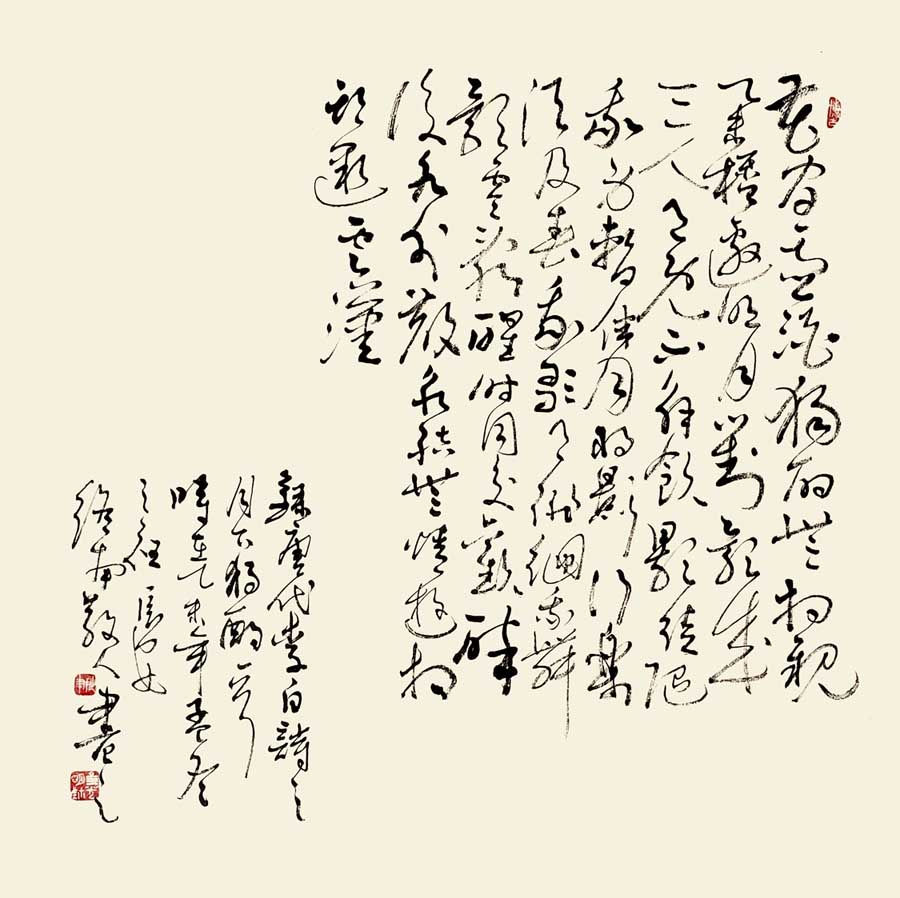 花間一壺酒獨酌無相親
舉杯邀明月對影成
三人月既不解飲影徒隨
我身暫伴月將影行樂
須及春我歌月徘徊我舞
影零亂醒時同交歡醉
後各分散永結無情遊相
期邈雲漢
錄唐代李白詩之
月下獨酌一首
時在未年孟冬
之
南散人書之